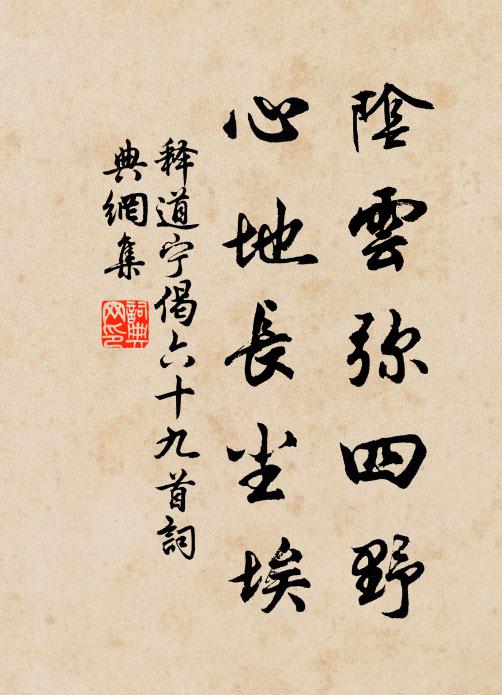 陰雲弥四野
心地長尘埃
释道宁偈六十九首詞
典網集
詞典
网印